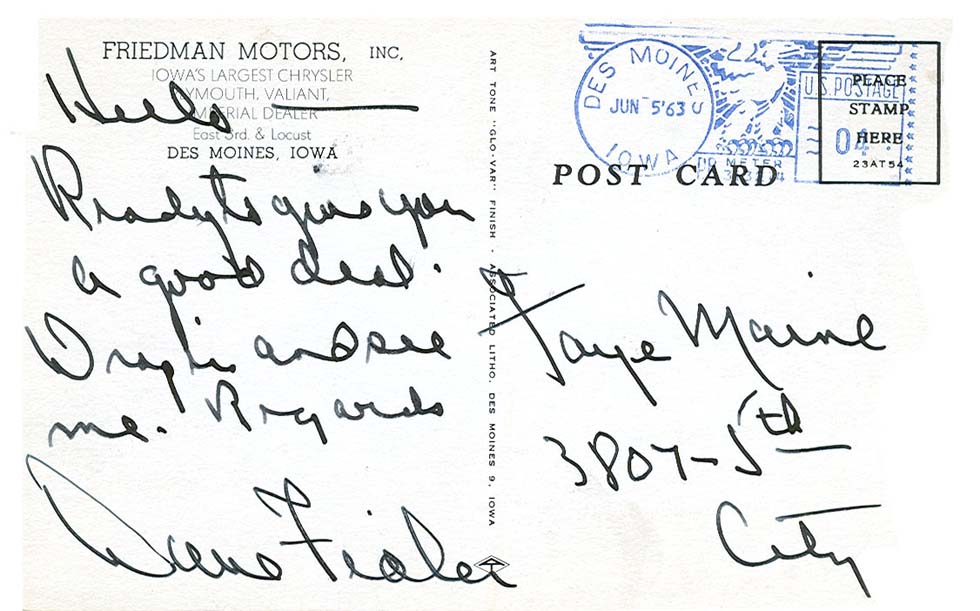 FRIEDMAN MOTORS, INC.
IOWA'S LARGEST CHRYSLER
PLYMOUTH, VALIANT,
IMPERIAL DEALER
East 3rd. & Locust
DES MOINES, IOWA
Hello —
Ready to give you
a good deal.
Drop in and see
me. Regards
Fidler
ART TONE "GLO-VAR" FINISH · ASSOCIATED LITHO. DES MOINES 9, IOWA
DES MOINES
JUN 5 '63
IOWA
U.S. POSTAGE
04
METER
PLACE
STAMP
HERE
23AT54
POST CARD
Faye Maine
3807 - 5th
City